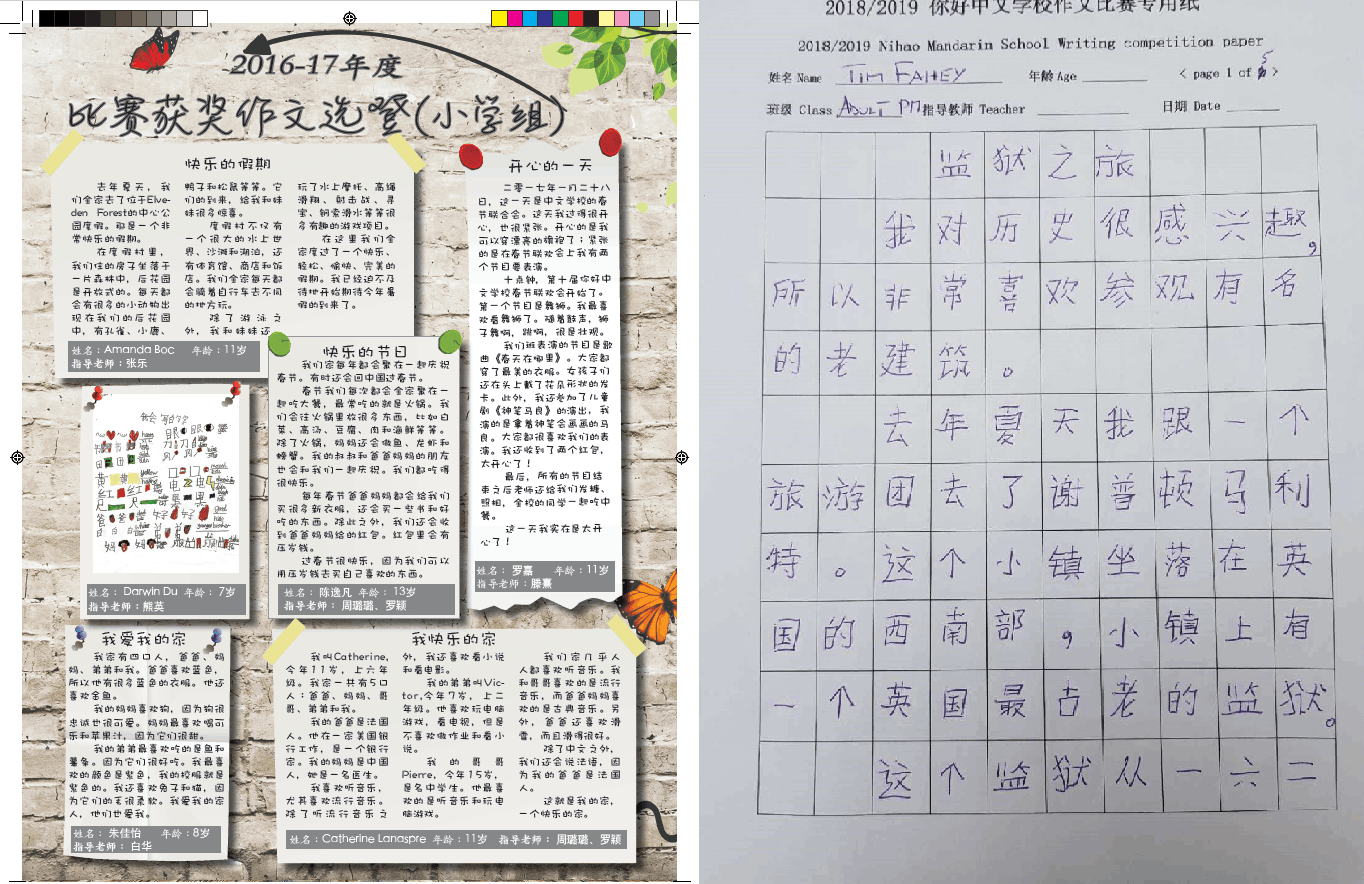 2016-17年度
比赛获奖作文选登(小学组)
快乐的假期
去年夏天，我
们全家去了位于Elve-
den Forest的中心公
园度假。那是一个非
常快乐的假期。
在度假村里，
我们住的房子坐落于
一片森林中，后花园
是开放式的。每天都
会有很多的小动物出
现在我们的后花园
中，有孔雀、小鹿、
鸭子和松鼠等等。它
们的到来，给我和妹
妹很多惊喜。
度假村不仅有
一个很大的水上世
界、沙滩和湖泊，还
有体育馆、商店和饭
店。我们全家每天都
会骑着自行车去不同
的地方玩。
除了游泳之
外，我和妹妹还
玩了水上摩托、高绳
滑翔、射击战、寻
宝、钢索滑水等等很
多有趣的游戏项目。
在这里我们全
家度过了一个快乐、
轻松、愉快、完美的
假期。我已经迫不及
待地开始期待今年暑
假的到来了。
姓名：Amanda Boc 年龄：11岁
指导老师：张乐
开心的一天
二零一七年一月二十八
日，这一天是中文学校的春
节联合会。这天我过得很开
心，也很紧张。开心的是我
可以穿漂亮的旗袍了；紧张
的是在春节联欢会上我有两
个节目要表演。
十点钟，第十届你好中
文学校春节联欢会开始了。
第一个节目是舞狮。我最喜
欢看舞狮了。随着鼓声，狮
子舞啊，跳啊，很是壮观。
我们班表演的节目是歌
曲《春天在哪里》。大家都
穿了最美的衣服。女孩子们
还在头上戴了花朵形状的发
卡。此外，我还参加了儿童
剧《神笔马良》的演出，我
演的是拿着神笔会画画的马
良。大家都很喜欢我们的表
演。我还收到了两个红包，
太开心了！
最后，所有的节目结
束之后老师还给我们发糖、
照相，全校的同学一起吃中
餐。
这一天我实在是太开
心了！
姓名：罗嘉 年龄：11岁
指导老师：滕熹
快乐的节日
我们家每年都会聚在一起庆祝
春节。有时还会回中国过春节。
春节我们每次都会全家聚在一
起吃大餐，最常吃的就是火锅。我
们会往火锅里放很多东西，比如白
菜、高汤、豆腐、肉和海鲜等等。
除了火锅，妈妈还会做鱼、龙虾和
螃蟹。我的叔叔和爸爸妈妈的朋友
也会和我们一起庆祝。我们都吃得
很快乐。
每年春节爸爸妈妈都会给我们
买很多新衣服，还会买一些书和好
吃的东西。除此之外，我们还会收
到爸爸妈妈给的红包。红包里会有
压岁钱。
过春节很快乐，因为我们可以
用压岁钱去买自己喜欢的东西。
姓名：陈逸凡 年龄：13岁
指导老师：周璐璐、罗颖
姓名：Darwin Du 年龄：7岁
指导老师：熊英
我爱我的家
我家有四口人，爸爸、妈
妈、弟弟和我。爸爸喜欢蓝色，
所以他有很多蓝色的衣服。他还
喜欢金鱼。
我的妈妈喜欢狗，因为狗很
忠诚也很可爱。妈妈最喜欢喝可
乐和苹果汁，因为它们很甜。
我的弟弟最喜欢吃的是鱼和
薯条。因为它们很好吃。我最喜
欢的颜色是紫色，我的校服就是
紫色的。我还喜欢兔子和猫，因
为它们的毛很柔软。我爱我的家
人，他们也爱我。
姓名：朱佳怡 年龄：8岁
指导老师：白华
我快乐的家
我叫Catherine,
今年11岁，上六年
级。我家一共有5口
人：爸爸、妈妈、哥
哥、弟弟和我。
我的爸爸是法国
人。他在一家美国银
行工作，是一个银行
家。我的妈妈是中国
人，她是一名医生。
我喜欢听音乐，
尤其喜欢流行音乐。
除了听流行音乐之
外，我还喜欢看小说
和看电影。
我的弟弟叫Vic-
tor,今年7岁，上二
年级。他喜欢玩电脑
游戏，看电视，但是
不喜欢做作业和看小
说。
我的哥哥
Pierre，今年15岁，
是名中学生。他最喜
欢的是听音乐和玩电
脑游戏。
我们家几乎人
人都喜欢听音乐。我
和哥哥喜欢的是流行
音乐，而爸爸妈妈喜
欢的是古典音乐。另
外，爸爸还喜欢滑
雪，而且滑得很好。
除了中文之外，
我们还会说法语，因
为我的爸爸是法国
人。
这就是我的家，
一个快乐的家。
姓名：Catherine Lanaspre 年龄：11岁 指导老师：周璐璐、罗颖
2018/2019 你好中文学校作文比赛专用纸
2018/2019 Nihao Mandarin School Writing competition paper
姓名 Name TIM FAHEY 年龄 Age < page 1 of 5 >
班级 Class ADULT PM 指导教师 Teacher 日期 Date
监狱之旅
我对历史很感兴趣，
所以非常喜欢参观有名
的老建筑。
去年夏天我跟一个
旅游团去了谢普顿马利
特。这个小镇坐落在英
国的西南部，小镇上有
一个英国最古老的监狱。
这个监狱从一六二